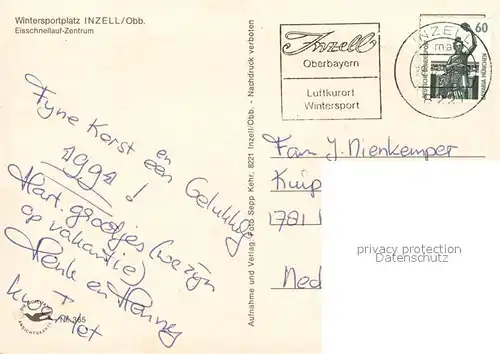 Wintersportplatz INZELL/Obb.
Eisschnellauf-Zentrum
Fyne Kerst en
een Gelukkig
1991!
Hart. groetjes (we zyn
op vakantie)
Henk en Henney
Nr. 365
Aufnahme und Verlag: Foto Sepp Kehr, 8221 Inzell/Obb. - Nachdruck verboten
Inzell
Oberbayern
Luftkurort
Wintersport
INZELL
60
DEUTSCHE BUNDESPOST
BAVARIA MÜNCHEN
Fam J. Nienkemper
Kuip
1781
Ned
privacy protection
Datenschutz